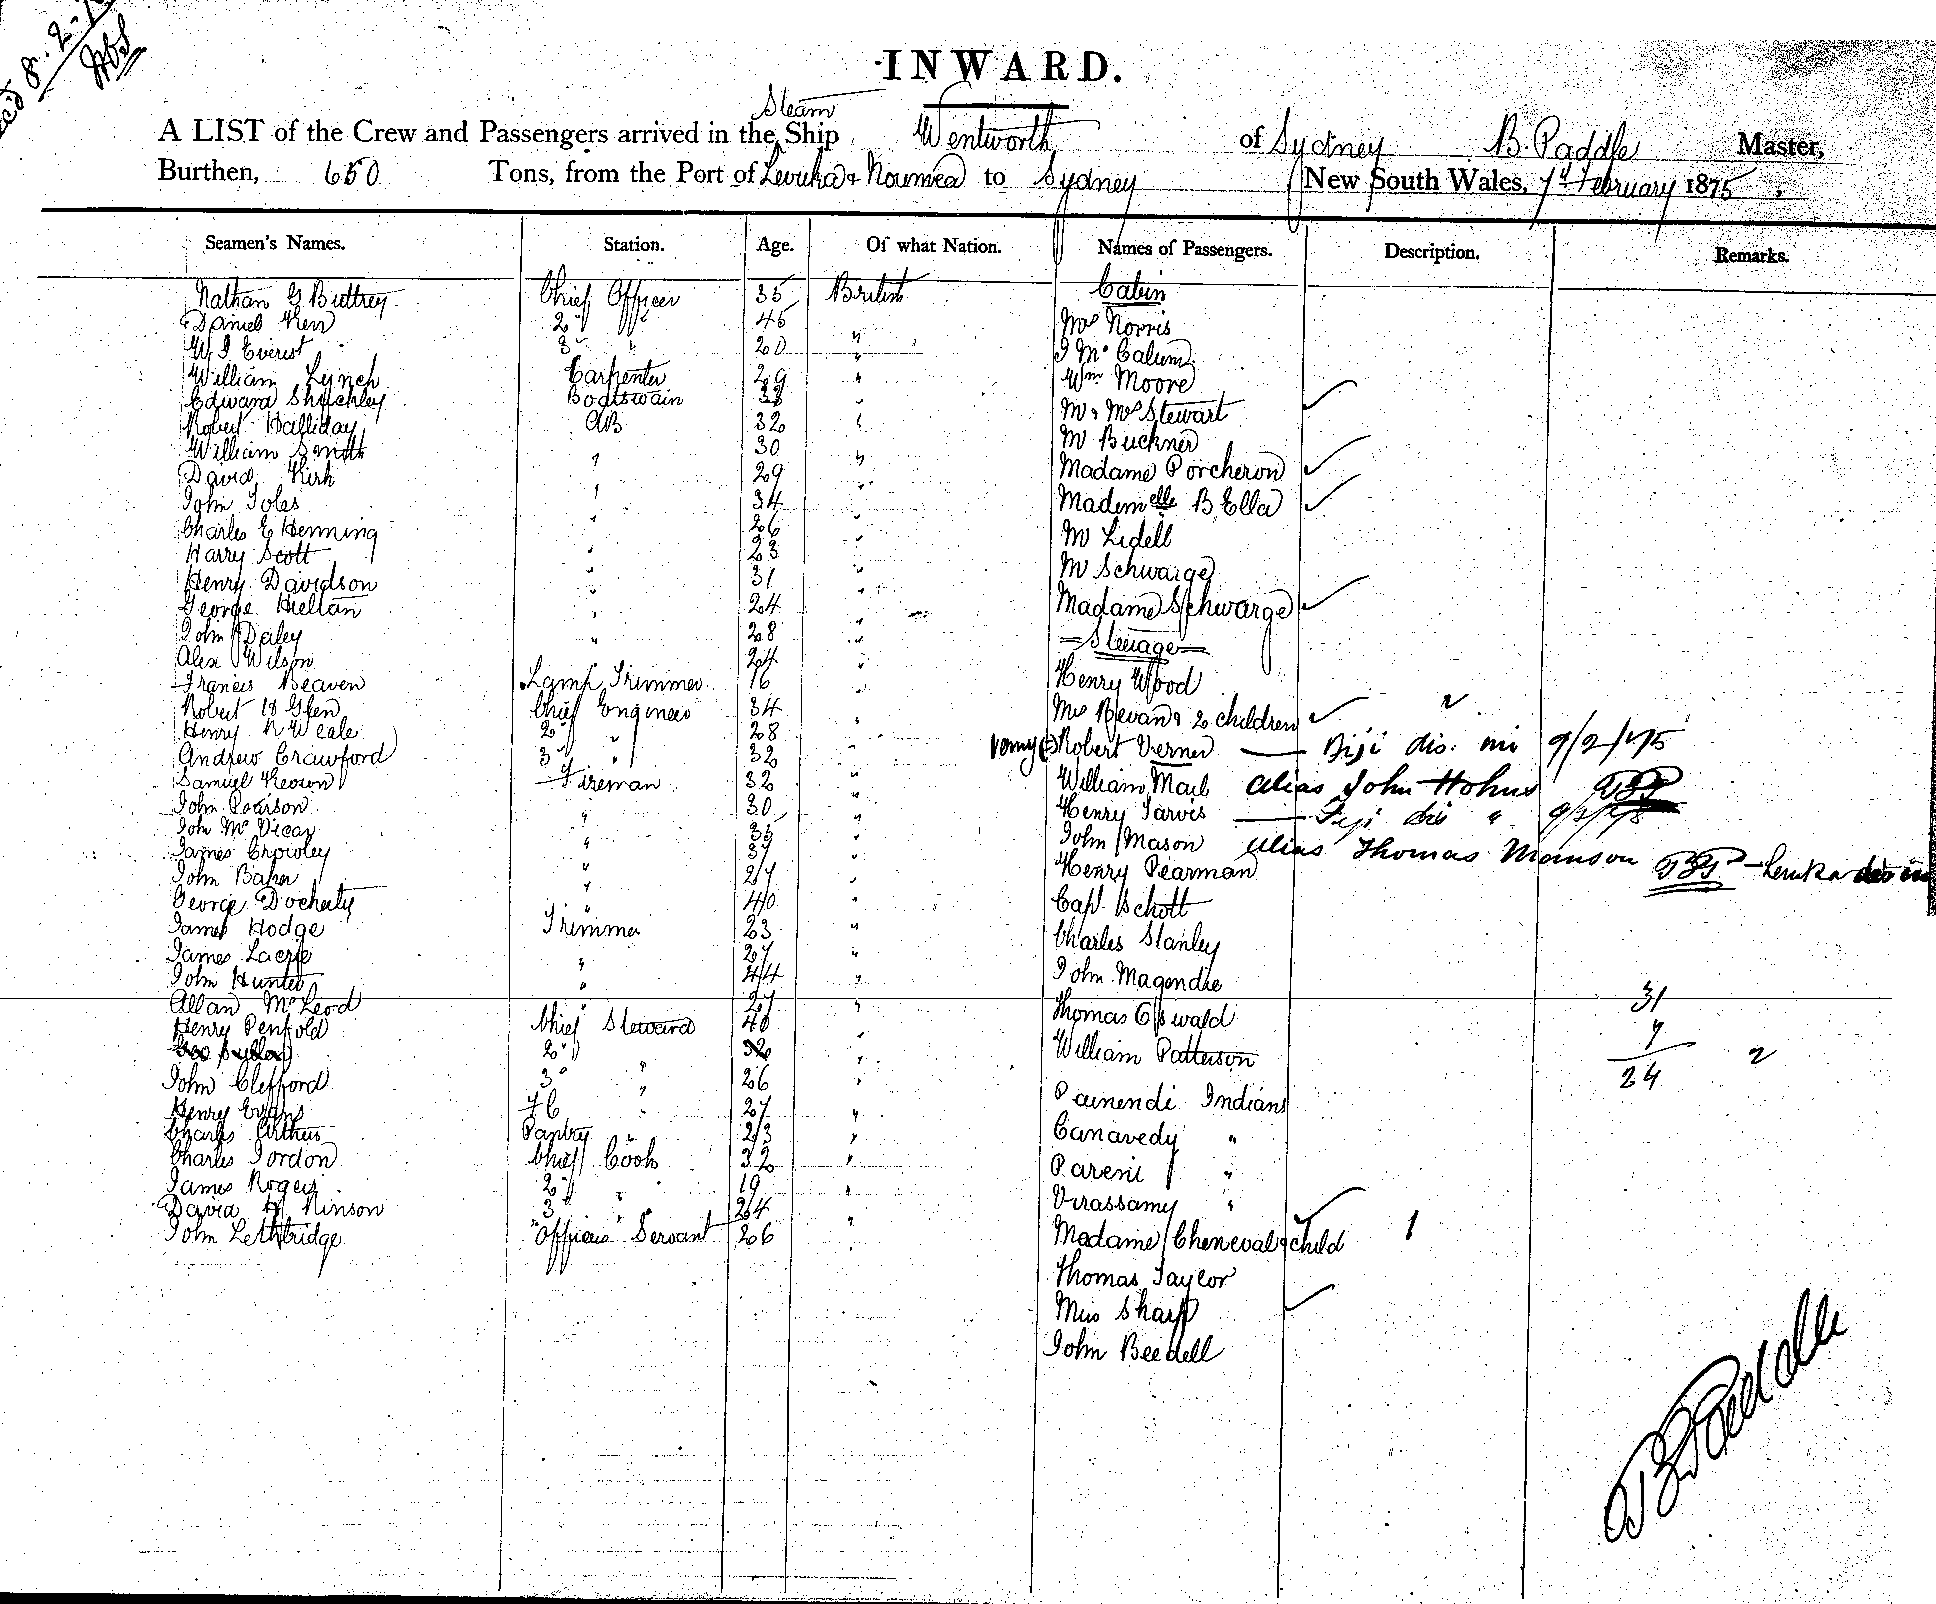 Rec'd 8.2.
INWARD.
Steam
A LIST of the Crew and Passengers arrived in the Ship Wentworth of Sydney B Paddle Master,
Burthen, 650 Tons, from the Port of Levuka & Noumea to Sydney New South Wales, 7th February 1875
Seamen's Names. Station. Age. Of what Nation. Names of Passengers. Description. Remarks.
Nathan G Buttrey Chief Officer 35 British Cabin
Daniel Kerr 2d " 45 Mrs Norris
W J Everist 3d " 20 " J McCalum
William Lynch Carpenter 29 " Wm Moore
Edward Shachley Boatswain 38 " Mr & Mrs Stewart
Robert Halliday AB 32 " Mr Buckner
William Smith " 30 " Madame Porcheron
David Kirk " 29 " Mademelle B Ella
John Soles " 34 " Mr Lidell
Charles E Henning " 26 " Mr Schwarge
Harry Scott " 23 " Madame Schwarge
Henry Davidson " 31 " Steerage
George Hellan " 24 " Henry Wood
John Daley " 28 " Mrs Bevan & 2 children 2
Alex Wilson " 24 " Robert Verner — Fiji dis. 9/2/75
Francis Beaven Lamp Trimmer 16 " William Mail alias John Hohns
Robert Glen Chief Engineer 34 " Henry Jarvis — Fiji dis " 9/2/75
Henry N Weale 2d " 28 " John Mason alias Thomas Manson
Andrew Crawford 3d " 32 " Henry Pearman
Samuel Keown Fireman 32 " Capt Schott
John Pearson " 30 " Charles Stanley
John McVicar " 35 " John Magendie
James Crowley " 37 " Thomas Oswald
John Baker " 27 " William Patterson
George Docherty " 40 " Painendi Indians
James Hodge Trimmer 23 " Canavedy "
James Lacrie " 27 " Pareni "
John Hunter " 44 " Virassamy "
Allan McLeod " 27 " Madame Cheneval & child 1
Henry Penfold Chief Steward 40 " Thomas Taylor
2d 32 " Miss Sharp
John Clefford 3d " 26 " John Beedell
Henry Evans " 27 "
Charles Arthur Pantry " 23 "
Charles Gordon Chief Cook 32 "
James Rogers 2d " 19 "
David Kinson 3d " 24
John Lethbridge Officers Servant 26 "
31
7
24 2
B Paddle